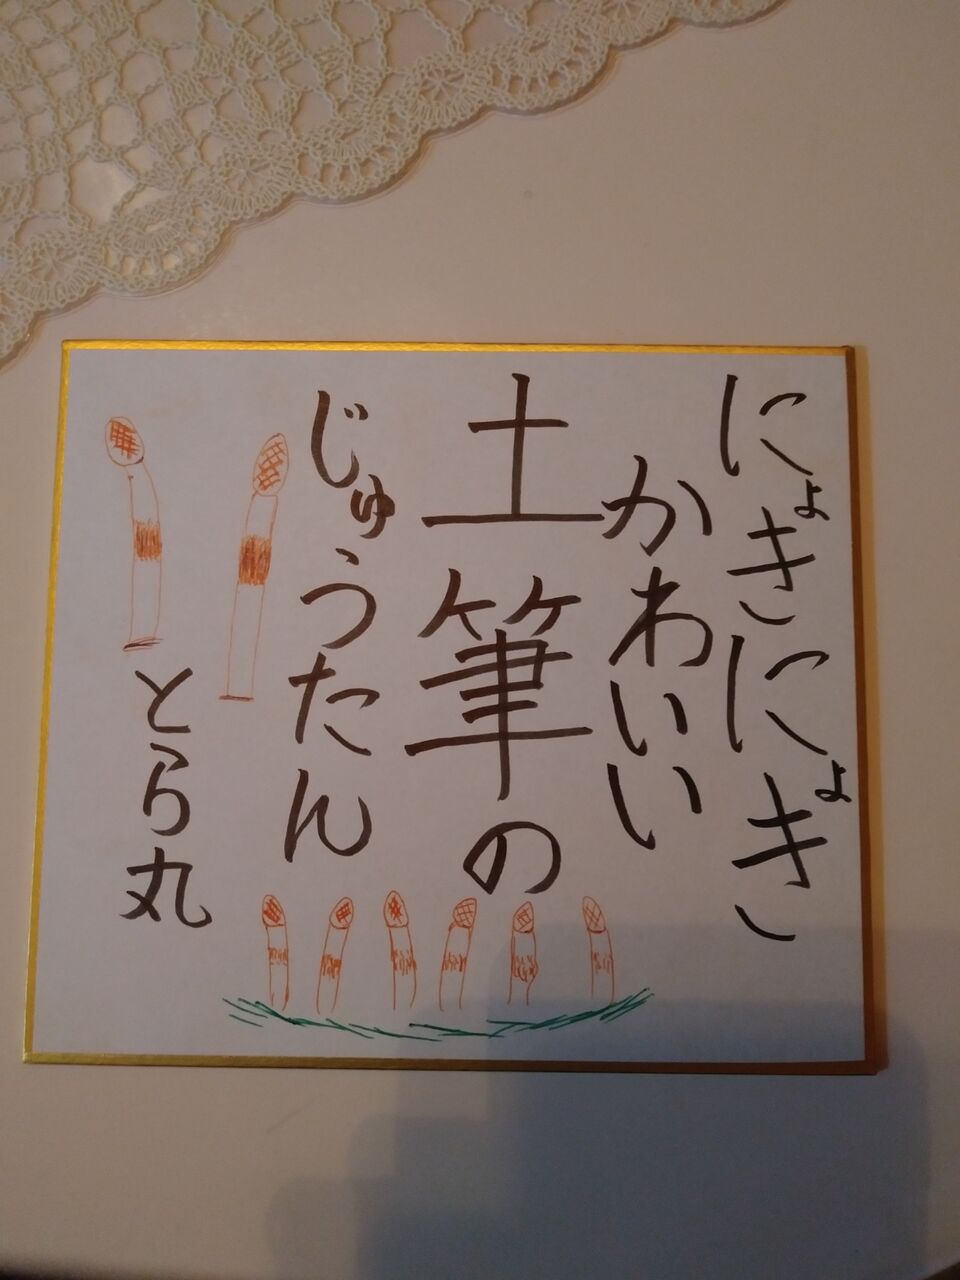 にょきにょき
かわいい
土筆の
じゅうたん
とら丸